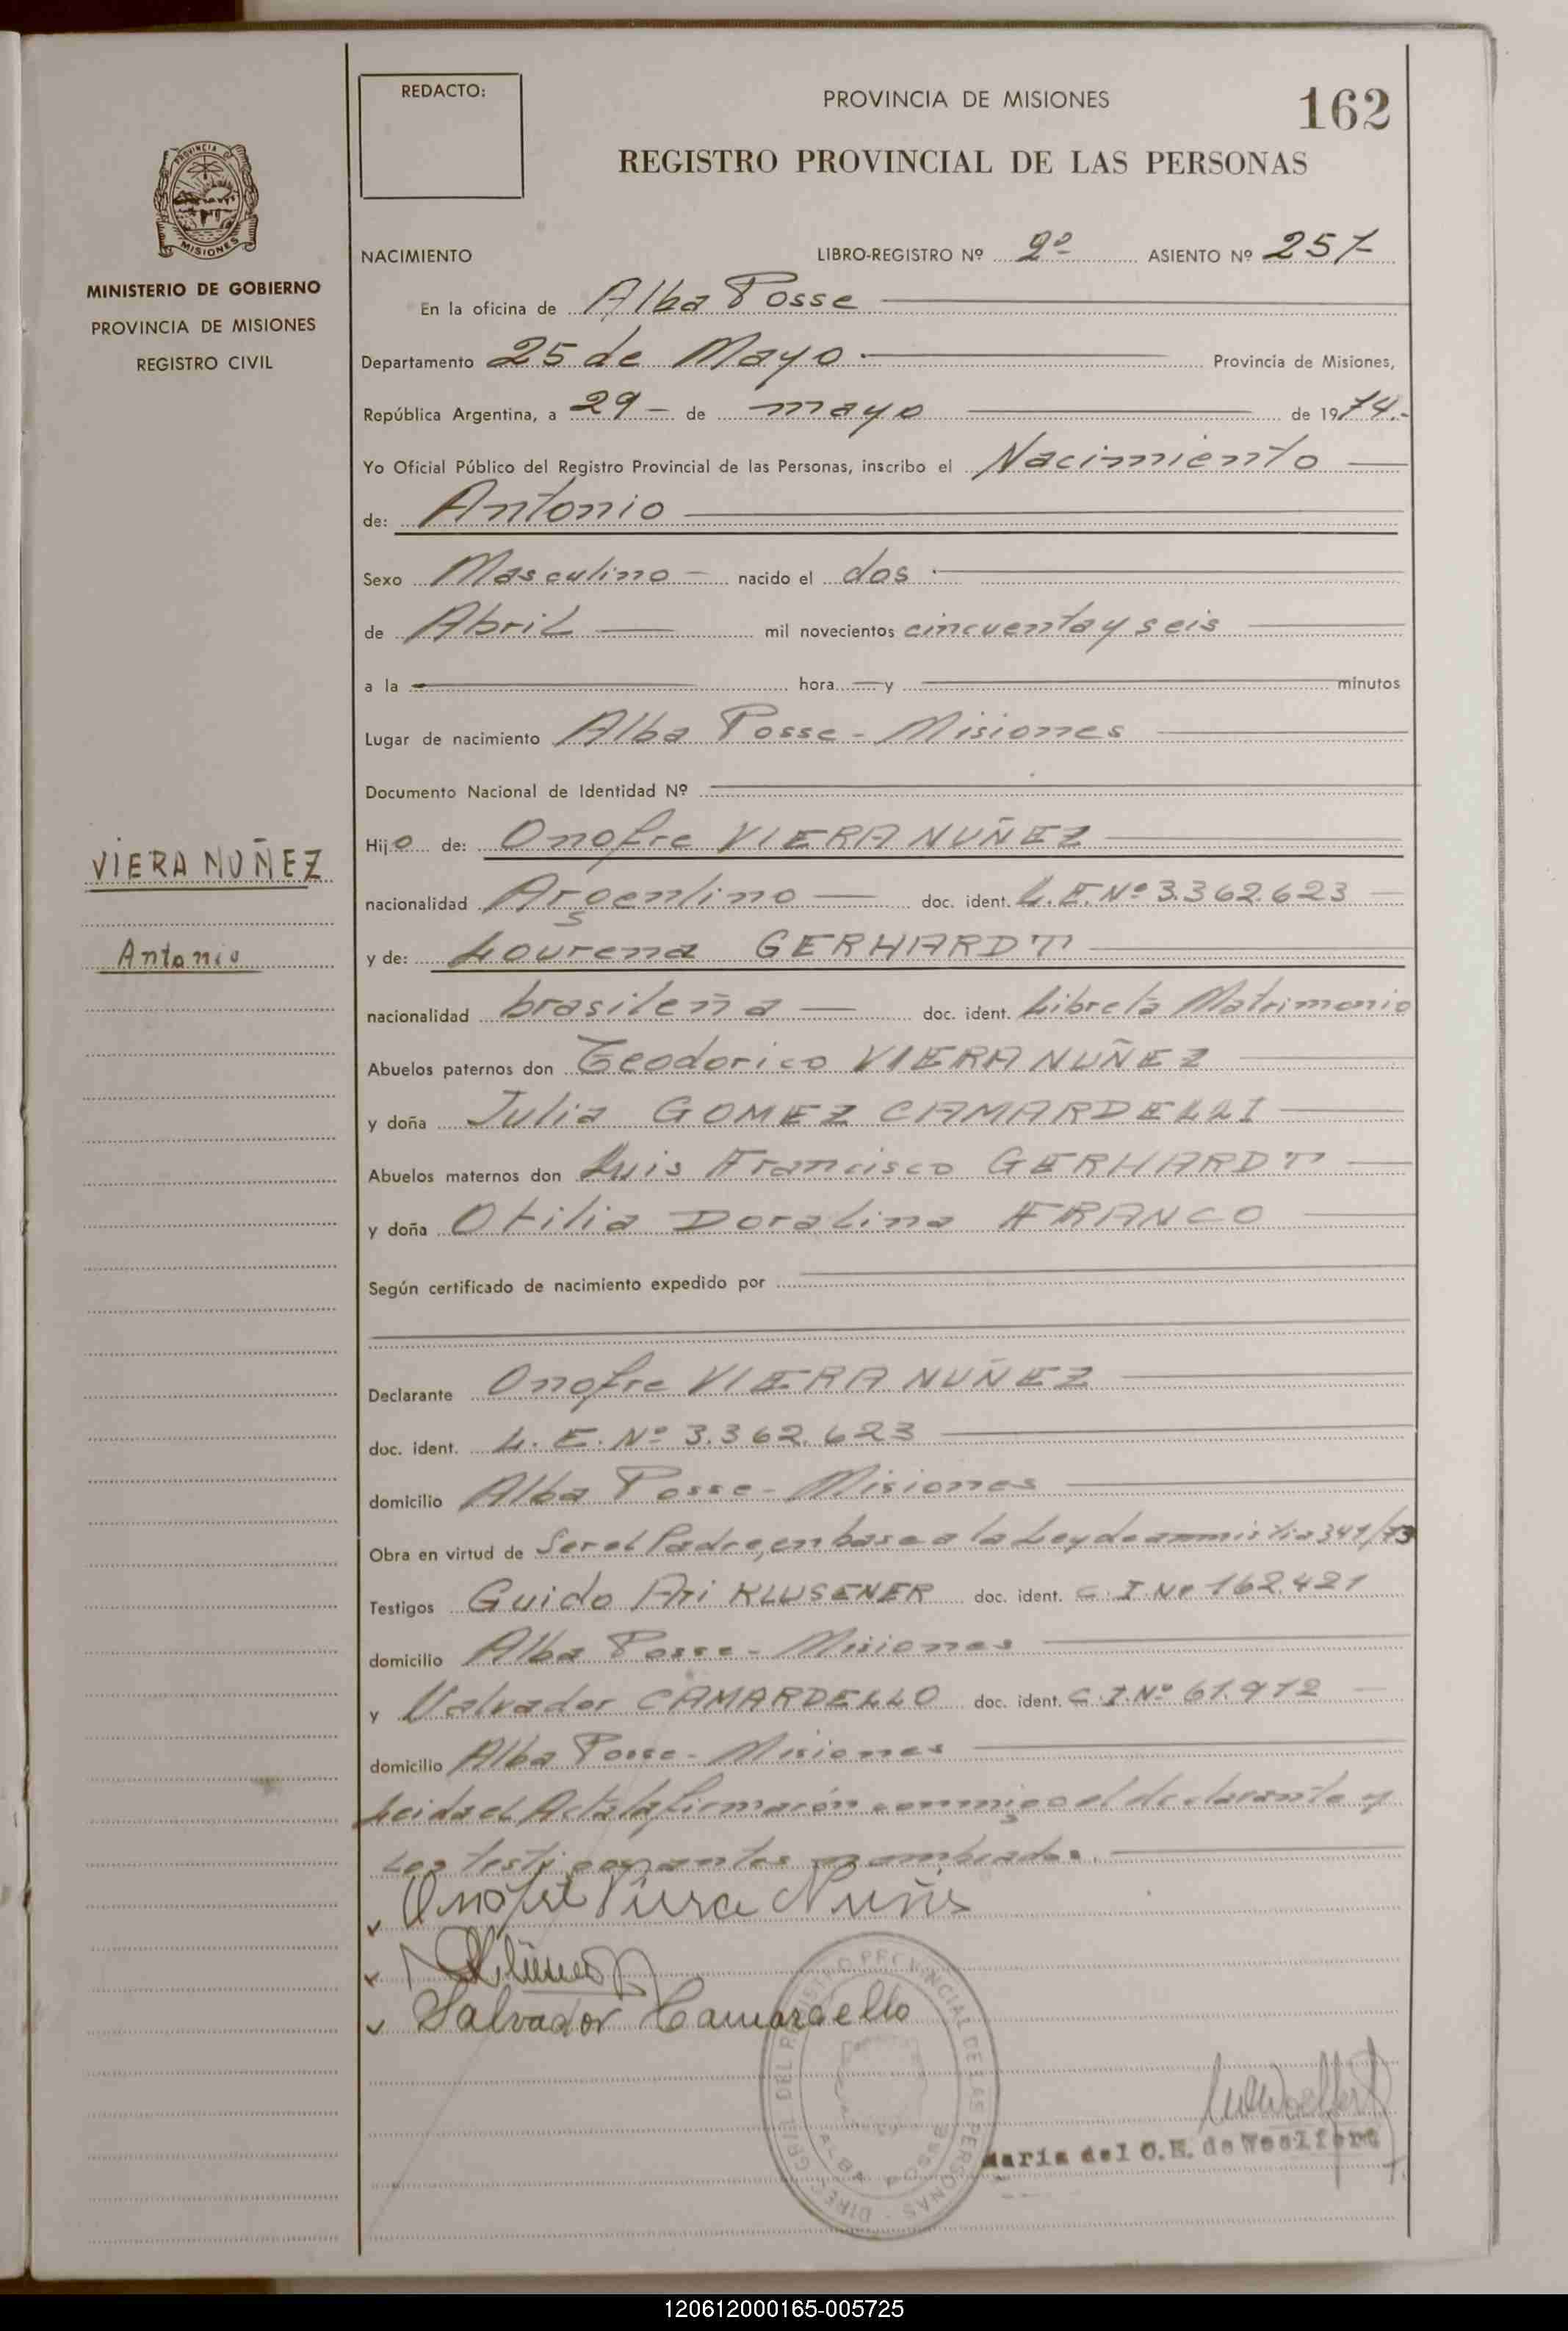 REDACTO:
PROVINCIA DE MISIONES
162
REGISTRO PROVINCIAL DE LAS PERSONAS
PROVINCIA DE
MISIONES
MINISTERIO DE GOBIERNO
PROVINCIA DE MISIONES
REGISTRO CIVIL
NACIMIENTO LIBRO-REGISTRO Nº 2º ASIENTO Nº 257
En la oficina de Alba Posse
Departamento 25 de Mayo Provincia de Misiones,
República Argentina, a 29 de mayo de 1974.-
Yo Oficial Público del Registro Provincial de las Personas, inscribo el Nacimiento
de: Antonio
Sexo Masculino nacido el dos
de Abril mil novecientos cincuenta y seis
a la hora y minutos
Lugar de nacimiento Alba Posse - Misiones
Documento Nacional de Identidad Nº
VIERA NUÑEZ
Antonio
Hijo de: Onofre VIERA NUÑEZ
nacionalidad Argentino doc. ident. L.E. Nº 3.362.623
y de: Lourena GERHARDT
nacionalidad brasileña doc. ident. Libreta Matrimonio
Abuelos paternos don Teodorico VIERA NUÑEZ
y doña Julia GOMEZ CAMARDELLI
Abuelos maternos don Luis Francisco GERHARDT
y doña Otilia Doralina FRANCO
Según certificado de nacimiento expedido por
Declarante Onofre VIERA NUÑEZ
doc. ident. L. E. Nº 3.362.623
domicilio Alba Posse - Misiones
Obra en virtud de Ser el Padre, en base a la Ley de ammistia 341/73
Testigos Guido Ari KLUSENER doc. ident. C.I. Nº 162.421
domicilio Alba Posse - Misiones
y Valvador CAMARDELLO doc. ident. C.I. Nº 61.912
domicilio Alba Posse - Misiones
Leida el Acta la firmarón conmigo el declarante y
Los testigos antes nombrados.
Onofre Viera Nuñes
Salvador Camardello
DIREC. GRAL. DEL REGISTRO PROVINCIAL DE LAS PERSONAS
ALBA POSSE
Maria del C.E. de Woelfert
120612000165-005725